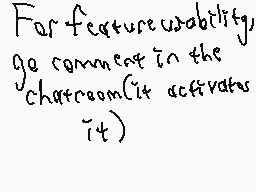 For feature usability,
go comment in the
chatroom(it activates
it)